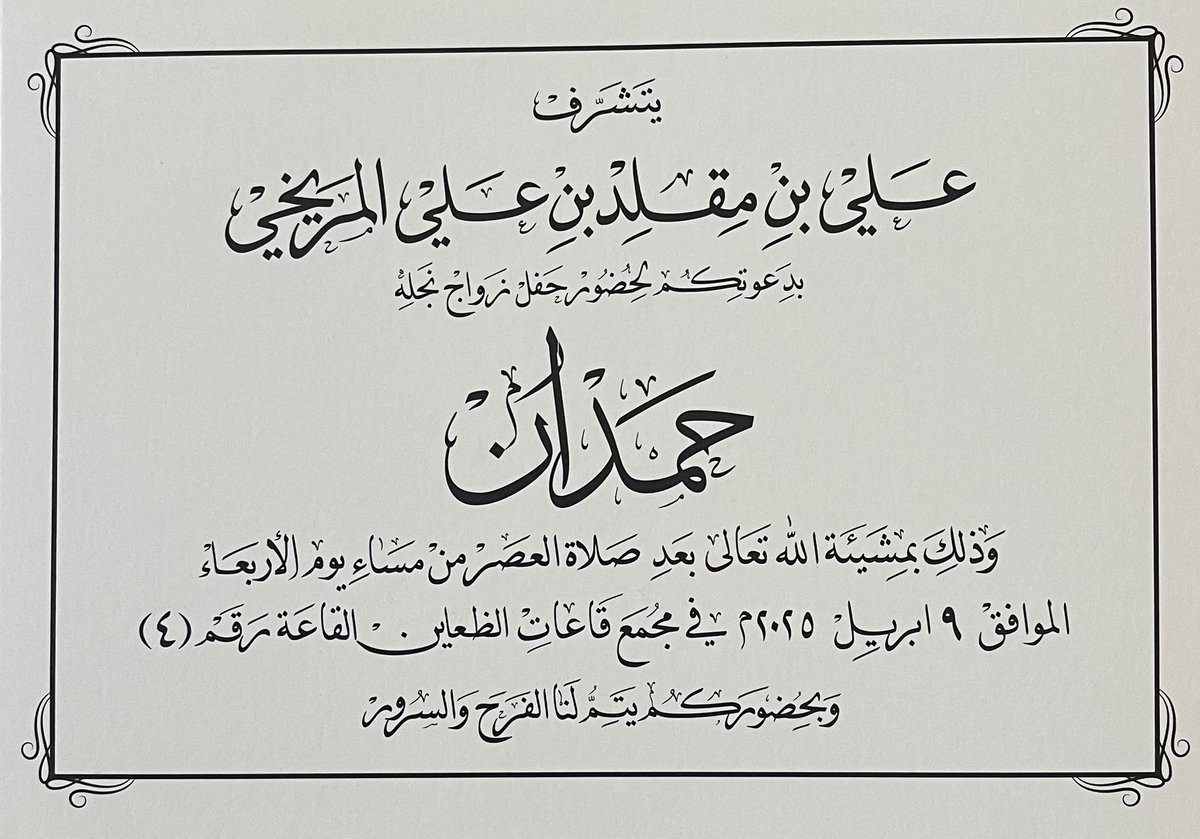 يتشرف
علي بن مقلد بن علي المريخي
بدعوتكم لحضور حفل زواج نجله
حمدان
وذلك بمشيئة الله تعالى بعد صلاة العصر من مساء يوم الأربعاء
الموافق ٩ ابريل ٢٠٢٥م في مجمع قاعات الظعاين القاعة رقم (٤)
وبحضوركم يتم لنا الفرح والسرور